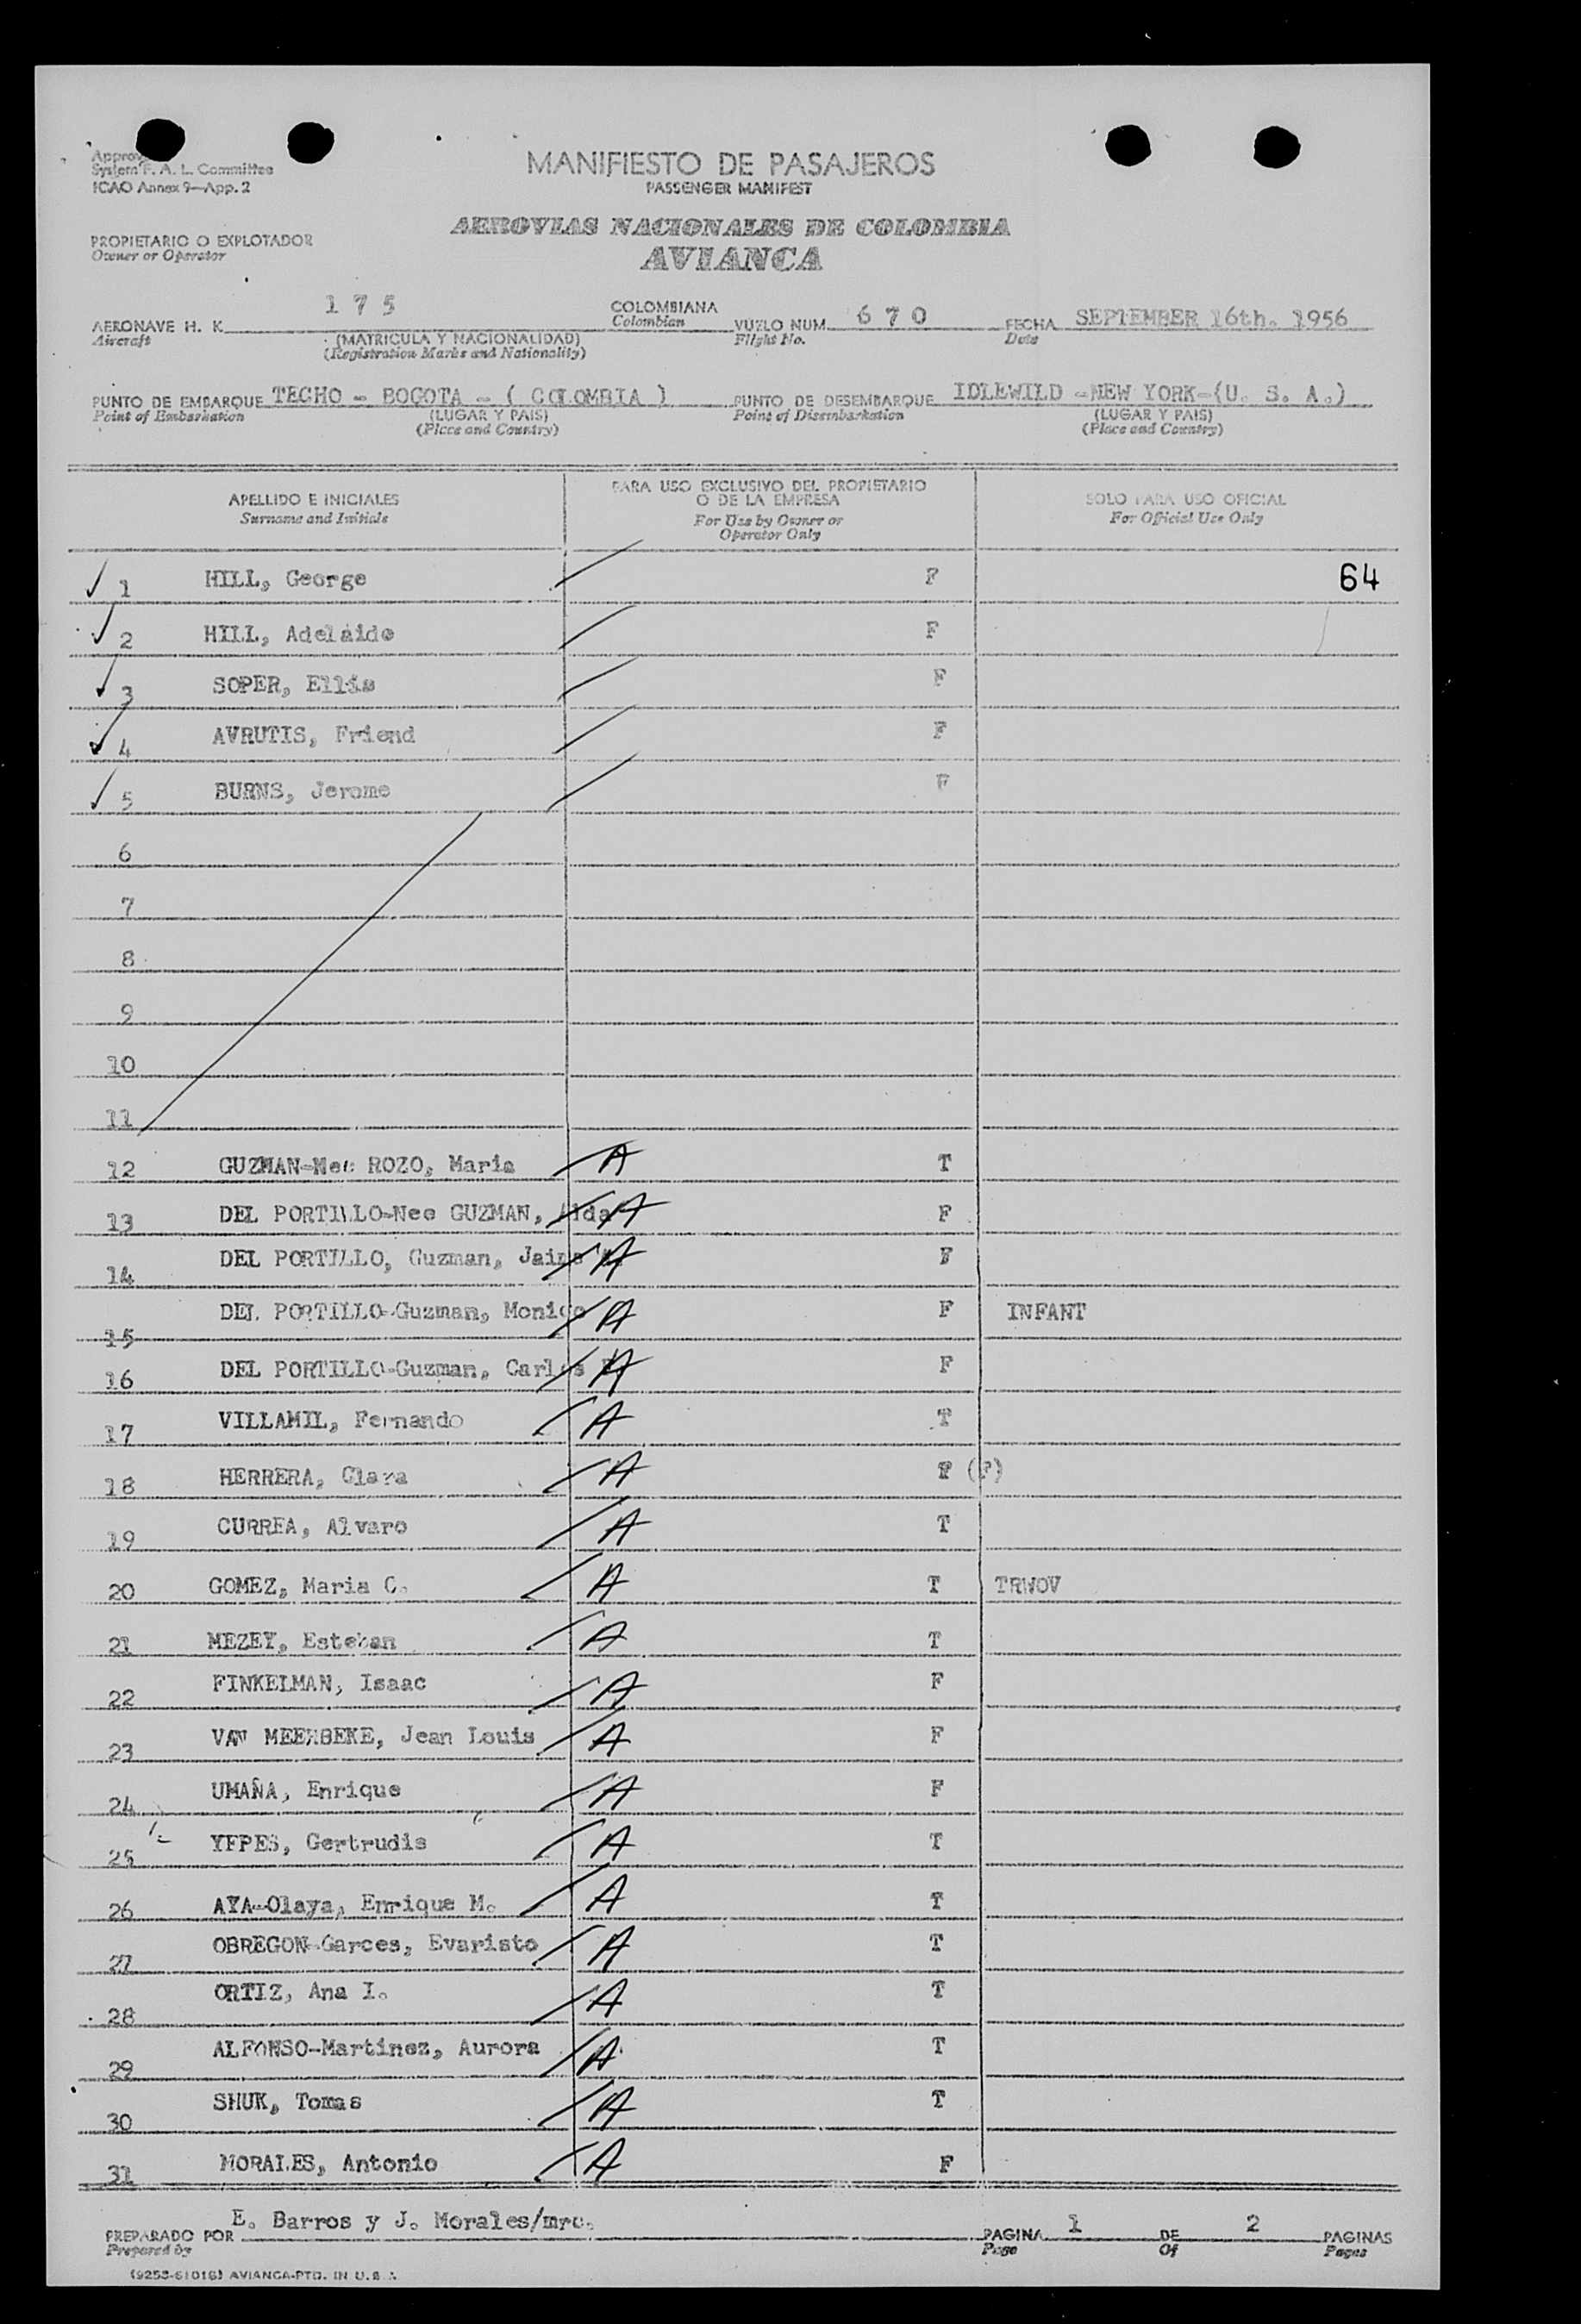 System F. A. L. Committee
ICAO Annex 9—App. 2
MANIFIESTO DE PASAJEROS
PASSENGER MANIFEST
AEROVIAS NACIONALES DE COLOMBIA
AVIANCA
PROPIETARIO O EXPLOTADOR
Owner or Operator
AERONAVE H. K. 1 7 5 COLOMBIANA VUELO NUM. 6 7 0 FECHA SEPTEMBER 16th. 1956
Aircraft (MATRICULA Y NACIONALIDAD) Colombian Flight No. Date
(Registration Marks and Nationality)
PUNTO DE EMBARQUE TECHO - BOGOTA - ( COLOMBIA ) PUNTO DE DESEMBARQUE IDLEWILD -NEW YORK-(U. S. A.)
Point of Embarkation (LUGAR Y PAIS) Point of Disembarkation (LUGAR Y PAIS)
(Place and Country) (Place and Country)
APELLIDO E INICIALES PARA USO EXCLUSIVO DEL PROPIETARIO SOLO PARA USO OFICIAL
Surname and Initials O DE LA EMPRESA For Official Use Only
For Use by Owner or
Operator Only
1 HILL, George F 64
2 HILL, Adelaide F
3 SOPER, Ellis F
4 AVRUTIS, Friend F
5 BURNS, Jerome F
6
7
8
9
10
11
12 GUZMAN-Nee ROZO, Maria A T
13 DEL PORTILLO-Nee GUZMAN, Aida A F
14 DEL PORTILLO, Guzman, Jaime A F
15 DEL PORTILLO-Guzman, Monica A F INFANT
16 DEL PORTILLO-Guzman, Carlos A F
17 VILLAMIL, Fernando A T
18 HERRERA, Clara A F (F)
19 CURREA, Alvaro A T
20 GOMEZ, Maria C. A T TRWOV
21 MEZEY, Esteban A T
22 FINKELMAN, Isaac A F
23 VAN MEERBEKE, Jean Louis A F
24 UMAÑA, Enrique A F
25 YEPES, Gertrudis A T
26 AYA-Olaya, Enrique M. A T
27 OBREGON-Garces, Evaristo A T
28 ORTIZ, Ana I. A T
29 ALFONSO-Martinez, Aurora A T
30 SHUK, Tomas A T
31 MORALES, Antonio A F
PREPARADO POR E. Barros y J. Morales/mrc. PAGINA 1 DE 2 PAGINAS
Prepared by Page Of Pages
(9253-61016) AVIANCA-PTD. IN U.S.A.